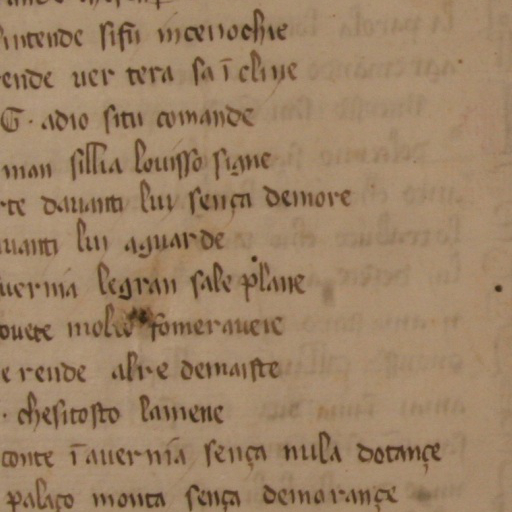 intende si fu incenochie
ende ver tera sa ī cline
G. a dio situ comande
man silli a lo visso signe
rte davanti luy sença demore
vanti lui aguarde
vernia le gran sale plane
ovete molto fo meraveie
e rende al re demaiste
che sitosto la mene
conte ī avernia sença nula dotançe
palaço monta sença demorançe